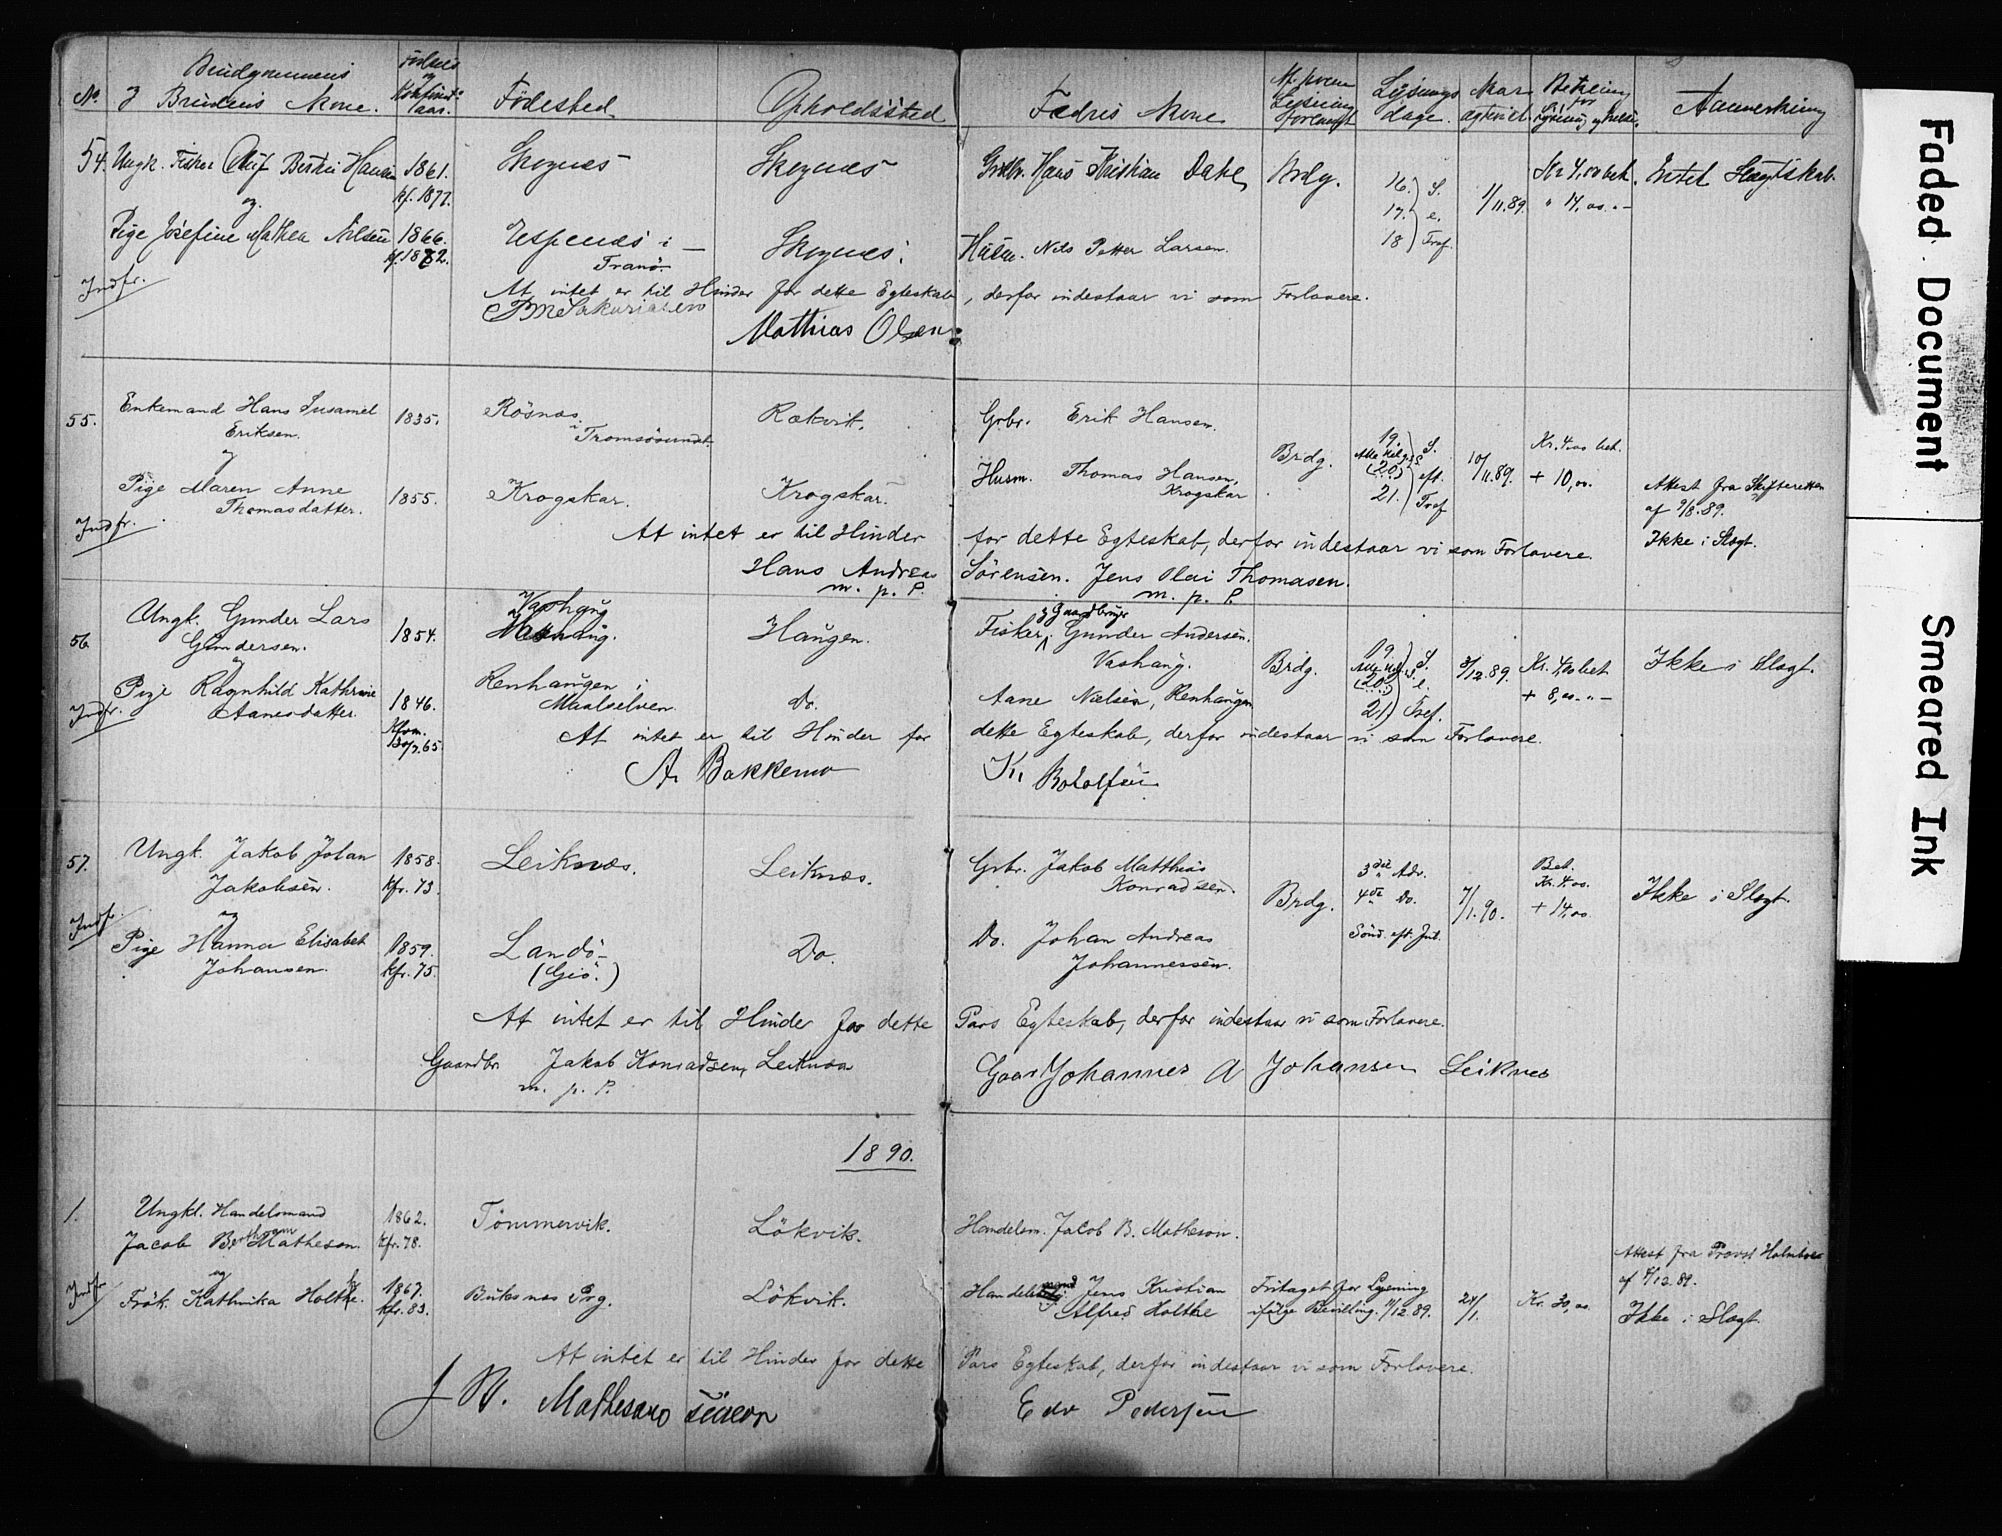 No. Brudgommens Fødsels Fødested. Opholdssted Fædres Navne Lysnings Mar Betaling Anmerkning
& Brudens Navne. og aar. dage. for Lysning og
54. Ungk. Fisker Oluf Bertin Hansen 1861. Skognes Skognes Grdbr. Hans Kristian Dahl Brdg. 16. S. 1/11.89. Kr 4,00 bet. Intet Slægtskab
kf. 1877. 17. e. " 14,00. "-
og
Pige Josefine Mathea Nilsen 1866. Espenes i Skognes. Husm. Nils Petter Larsen. 18 Tref.
kf. 1882. Tranö
Indfr. At intet er til Hinder for dette Egteskab, derfor indestaar vi som Forlovere.
Mathias Olsen
55. Enkemand Hans Susamel 1835. Rösnæs Rækvik. Grbr. Erik Hansen.
Eriksen. i Tromsösundet
og Brdg. 19. S. 10/11.89. Kr. 4.00 bet.
Alle Helg.s
(20) eft. + 10,00.
Pige Maren Anne 1855. Krogskar. Krogskar. Husm. Thomas Hansen, 21. Tref Attest fra Skifteretten
Thomasdatter. Krogskar af 9/8.89.
Indfr. At intet er til Hinder for dette Egteskab, derfor indestaar vi som Forlovere. Ikke i Slægt.
Hans Andreas Sörensen. Jens Olai Thomasen.
m. p. P. m. p. P.
56. Ungk. Gunder Lars 1854. Vashaug Haugen. Fisker & Gaardbruger Gunder Andersen.
Gundersen. Vashaug. Brdg. 19. S. 8/12.89. Kr. 4,00 bet Ikke i Slægt.
og Alle Helg.s (20) e. + 8,00. "-
Pige Ragnhild Kathrine 1846. Renhaugen i Do. Aane Nielsen, Renhaugen 21) Tref.
Aanesdatter. Maalselven.
Indfr. Kfom. 30/7.65 At intet er til Hinder for dette Egteskab, derfor indestaar vi som Forlovere.
A. Bakkemo K. Botolfsen
57. Ungk. Jakob Johan 1858. Leiknæs. Leiknæs. Grbr. Jakob Matthias 3die Adv. Bet.
Jakobsen. kfr. 73. Konradsen. Brdg. 4de Do. 7/1.90. Kr. 4.00. Ikke i Slægt.
og + 14,00
Indfr. Pige Hanna Elisabet 1859. Landö Do. Do. Johan Andreas Sönd. eft. Jul.
Johansen. kfr. 75. (Giö.) Johannessen.
At intet er til Hinder for dette Pars Egteskab, derfor indestaar vi som Forlovere.
Gaardbr. Jakob Konradsen, Leiknæs Gaar Johannes A Johansen Leiknes
m. p. P.
1890.
1. Ungkl. Handelsmand 1862. Tömmervik. Lökvik. Handelsm. Jacob B. Matheson.
Jacob Berthram Matheson. kfr. 78. Attest fra Provst Holmboe
og af 4/12.89.
Indfr. Frök. Kathinka Holthe. 1867. Buksnes Prg. Lökvik. Handelsmand Jens Kristian Fritaget for Lysning 24/1. Kr. 30,00. Ikke i Slægt.
kfr. 83. Alfred Holthe ifølge Bevilling. 11/12.89.
At intet er til Hinder for dette Pars Egteskab, derfor indestaar vi som Forlovere.
J B. Matheson senior Edv Pedersen
Faded Document Smeared Ink